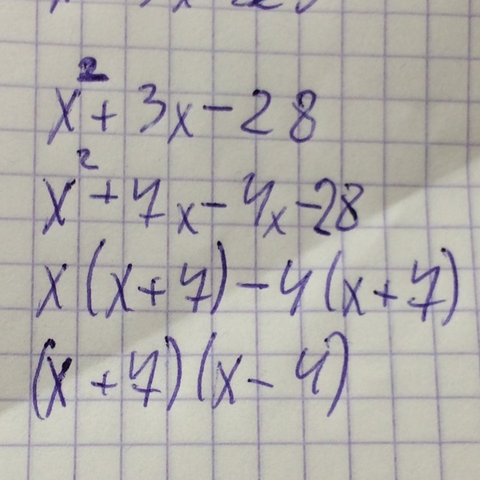 x² + 3x - 28
x² + 7x - 4x - 28
x(x + 7) - 4(x + 7)
(x + 7)(x - 4)